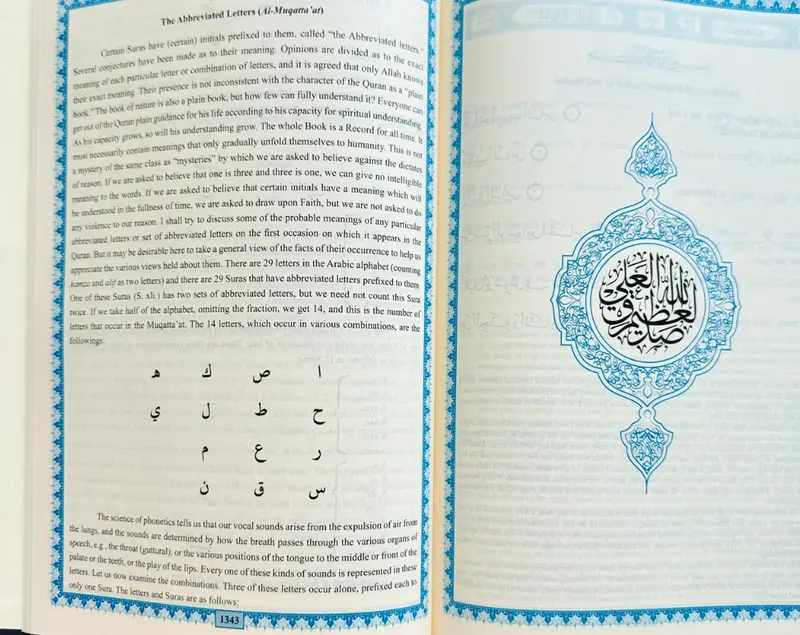 The Abbreviated Letters (Al-Muqatta'at)
Certain Suras have (certain) initials prefixed to them, called "the Abbreviated letters."
Several conjectures have been made as to their meaning. Opinions are divided as to the exact
meaning of each particular letter or combination of letters, and it is agreed that only Allah knows
their exact meaning. Their presence is not inconsistent with the character of the Quran as a "plain
book." The book of nature is also a plain book, but how few can fully understand it? Everyone can
get out of the Quran plain guidance for his life according to his capacity for spiritual understanding.
As his capacity grows, so will his understanding grow. The whole Book is a Record for all time. It
must necessarily contain meanings that only gradually unfold themselves to humanity. This is not
a mystery of the same class as "mysteries" by which we are asked to believe against the dictates
of reason. If we are asked to believe that one is three and three is one, we can give no intelligible
meaning to the words. If we are asked to believe that certain initials have a meaning which will
be understood in the fullness of time, we are asked to draw upon Faith, but we are not asked to do
any violence to our reason. I shall try to discuss some of the probable meanings of any particular
abbreviated letters or set of abbreviated letters on the first occasion on which it appears in the
Quran. But it may be desirable here to take a general view of the facts of their occurrence to help us
appreciate the various views held about them. There are 29 letters in the Arabic alphabet (counting
hamza and alif as two letters) and there are 29 Suras that have abbreviated letters prefixed to them.
One of these Suras (S. xli.) has two sets of abbreviated letters, but we need not count this Sura
twice. If we take half of the alphabet, omitting the fraction, we get 14, and this is the number of
letters that occur in the Muqatta'at. The 14 letters, which occur in various combinations, are the
followings:
ا ص ك ه
ح ط ل ي
ر ع م
س ق ن
The science of phonetics tells us that our vocal sounds arise from the expulsion of air from
the lungs, and the sounds are determined by how the breath passes through the various organs of
speech, e.g., the throat (guttural), or the various positions of the tongue to the middle or front of the
palate or the teeth, or the play of the lips. Every one of these kinds of sounds is represented in these
letters. Let us now examine the combinations. Three of these letters occur alone, prefixed each to
only one Sura. The letters and Suras are as follows:
1343
صدق الله العلي العظيم